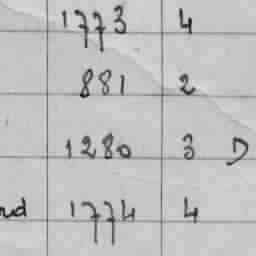 1773 4
881 2
1280 3 D
nd 1774 4